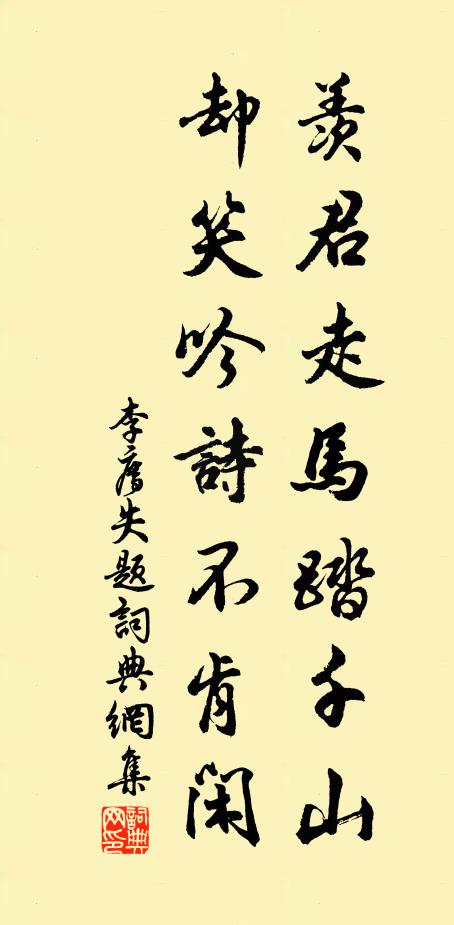 羨君走馬踏千山
却笑吟詩不肯閑
李廌失題詞典網集
詞典網印